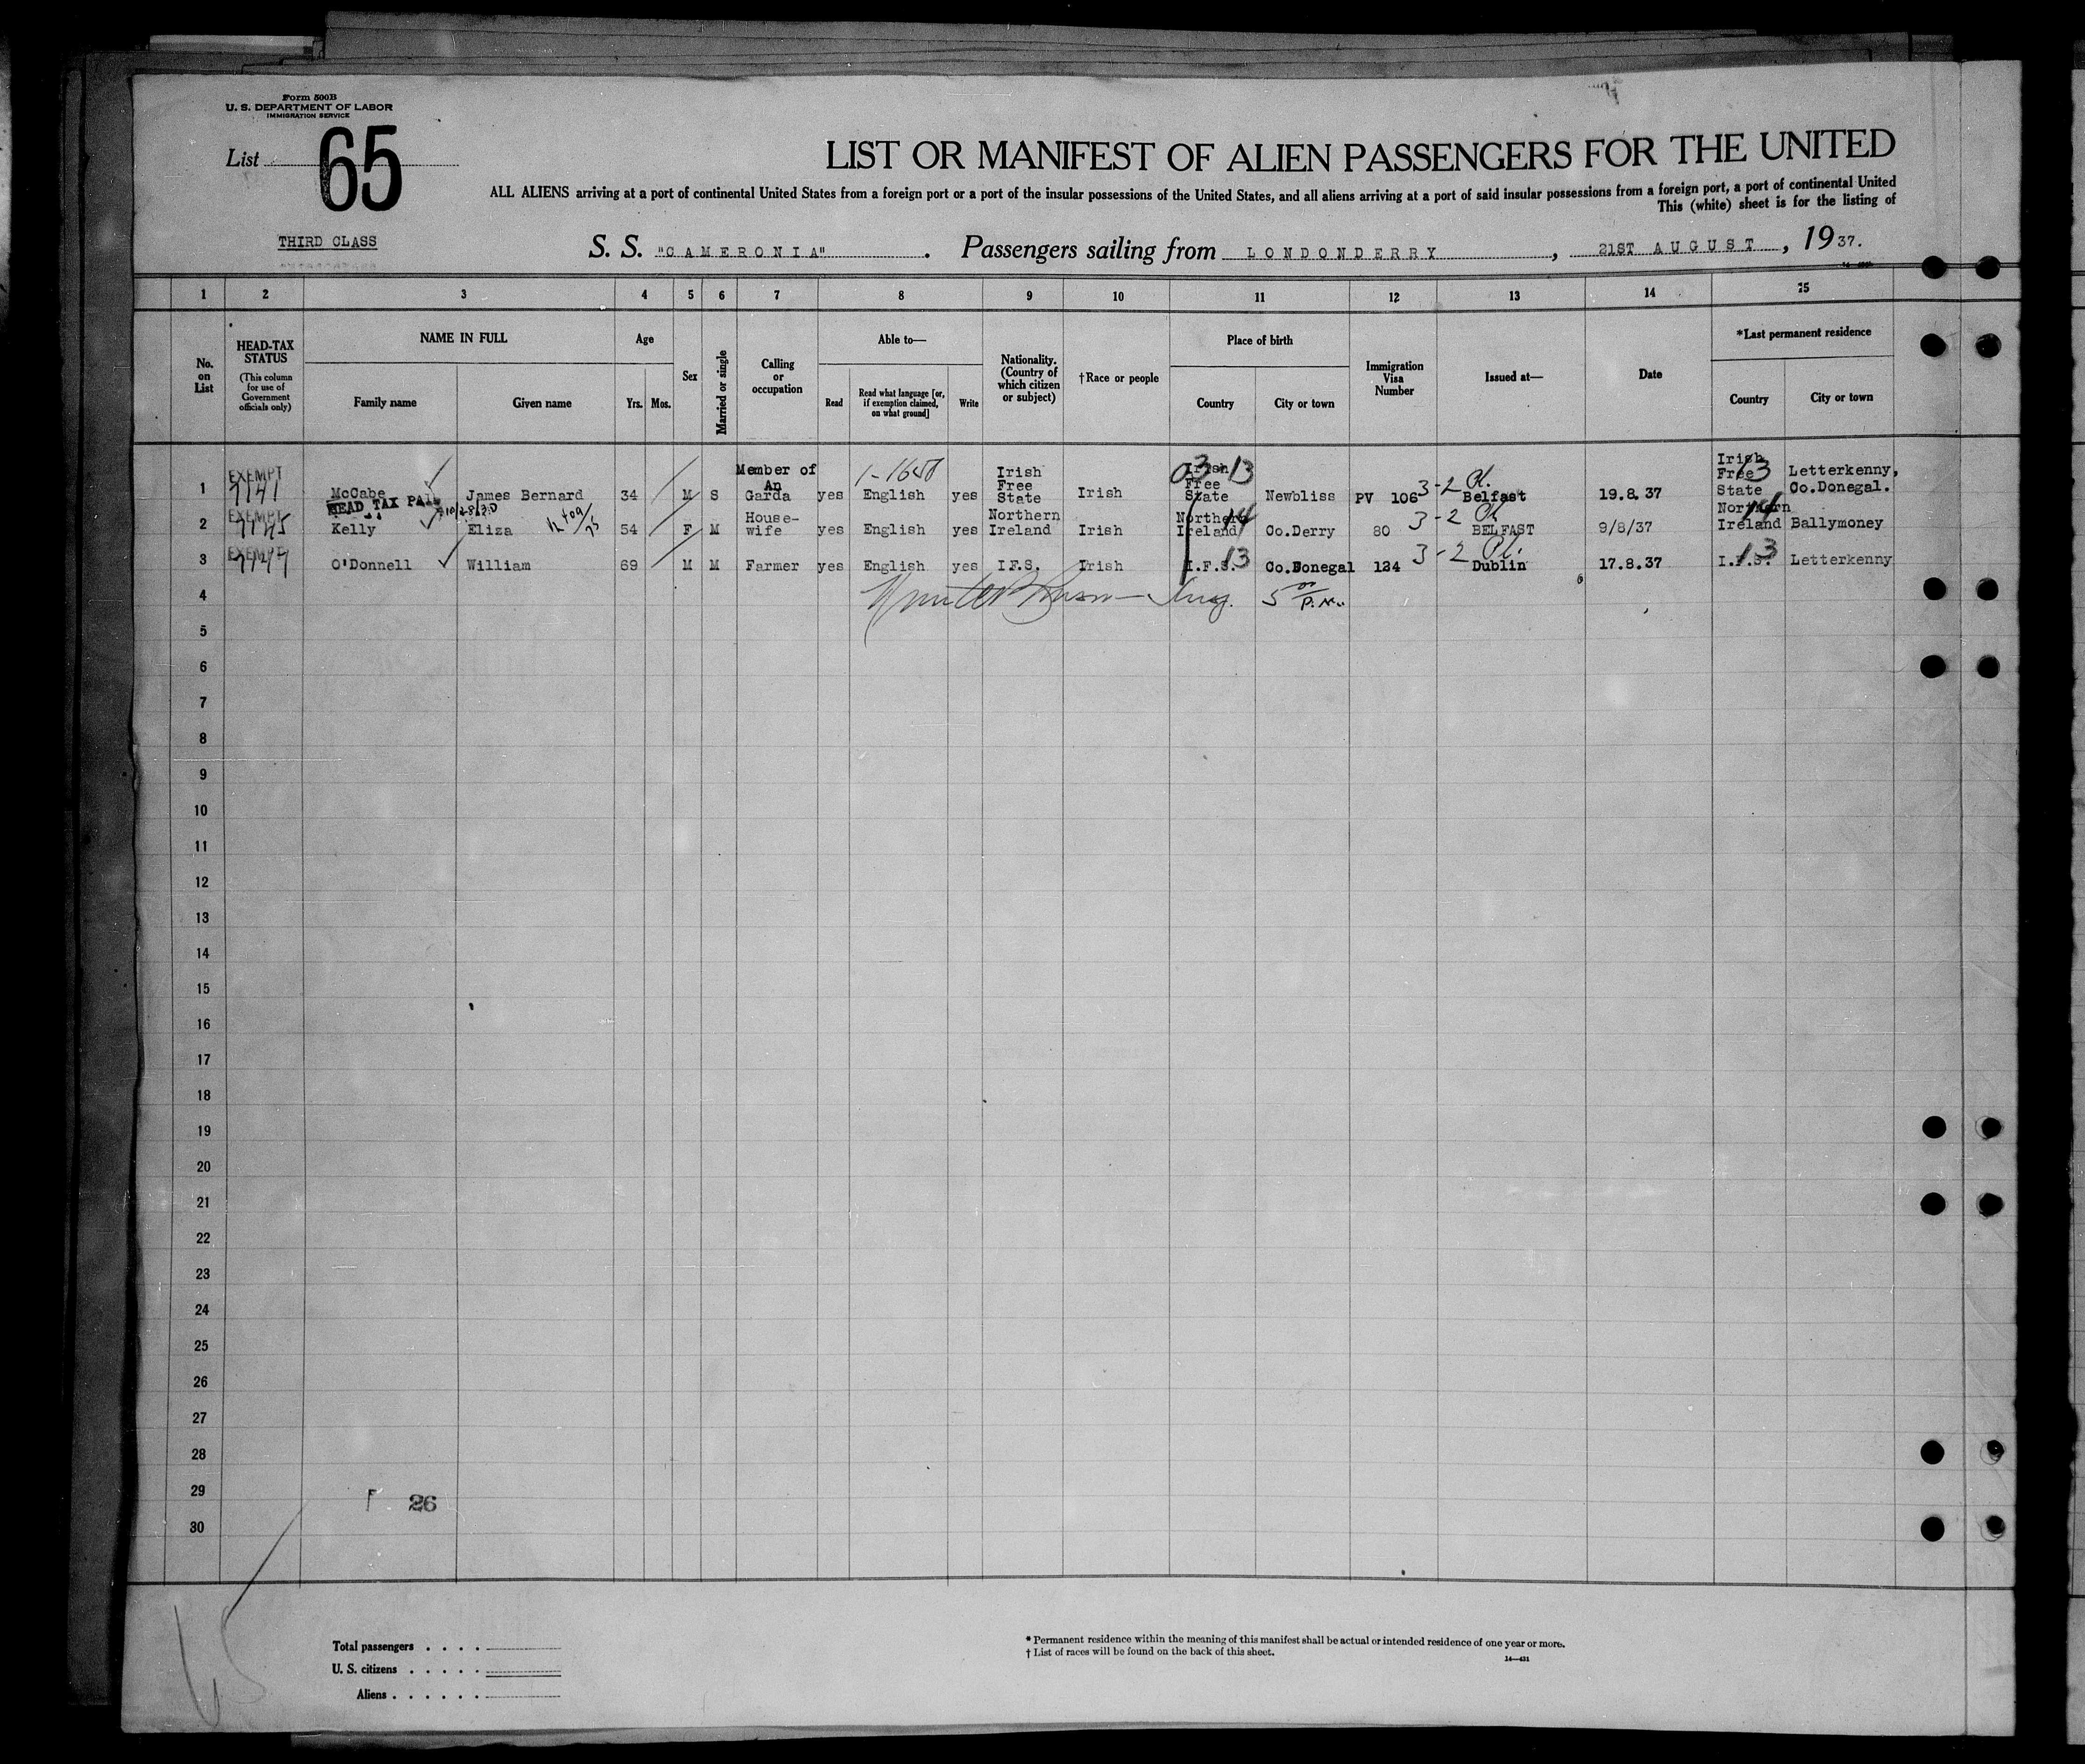 Form 500B
U. S. DEPARTMENT OF LABOR
IMMIGRATION SERVICE
List 65
LIST OR MANIFEST OF ALIEN PASSENGERS FOR THE UNITED
ALL ALIENS arriving at a port of continental United States from a foreign port or a port of the insular possessions of the United States, and all aliens arriving at a port of said insular possessions from a foreign port, a port of continental United
This (white) sheet is for the listing of
THIRD CLASS
S. S. "CAMERONIA" . Passengers sailing from LONDONDERRY , 21ST AUGUST , 1937.
1 2 3 4 5 6 7 8 9 10 11 12 13 14 15
No. on List
HEAD-TAX STATUS
(This column for use of Government officials only)
NAME IN FULL
Family name Given name
Age
Yrs. Mos.
Sex
Married or single
Calling or occupation
Able to—
Read
Read what language [or, if exemption claimed, on what ground]
Write
Nationality. (Country of which citizen or subject)
†Race or people
Place of birth
Country City or town
Immigration Visa Number
Issued at—
Date
*Last permanent residence
Country City or town
1 EXEMPT McCabe James Bernard 34 M S Member of An Garda yes English yes Irish Free State Irish Irish Free State Newbliss PV 106 3-2 Belfast 19.8.37 Irish Free State Letterkenny, Co.Donegal.
1-1658
03 13
13
HEAD TAX PAID
2 EXEMPT Kelly Eliza 54 F M House-wife yes English yes Northern Ireland Irish Northern Ireland 14 Co.Derry 80 3-2 BELFAST 9/8/37 Northern Ireland 14 Ballymoney
3 EXEMPT O'Donnell William 69 M M Farmer yes English yes I.F.S. Irish I.F.S. 13 Co.Donegal 124 3-2 Dublin 17.8.37 I.F.S. 13 Letterkenny
4
5 P.M.
5
6
7
8
9
10
11
12
13
14
15
16
17
18
19
20
21
22
23
24
25
26
27
28
29
26
30
Total passengers . . . .
U. S. citizens . . . . .
Aliens . . . . . .
* Permanent residence within the meaning of this manifest shall be actual or intended residence of one year or more.
† List of races will be found on the back of this sheet.
14—431